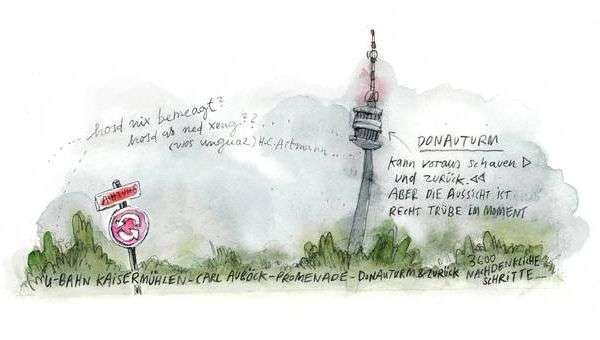 hosd nix bemeagt?
hosd as ned xeng??...
(vos unguaz) H.C. Artmann...
ACHTUNG
DONAUTURM
kann voraus schauen ▷
und zurück ◁◁
ABER DIE AUSSICHT IST
RECHT TRÜBE IM MOMENT
U-BAHN KAISERMÜHLEN-CARL AUBÖCK-PROMENADE-DONAUTURM & ZURÜCK
3600
NACHDENKLICHE
SCHRITTE...